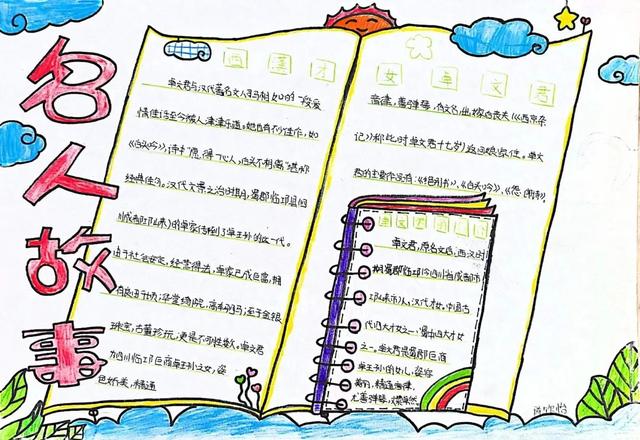 名人故事
西汉才
卓文君与汉代著名文人司马相如的一段爱
情佳话至今被人津津乐道。她也有不少佳作，如
《白头吟》，诗中“愿得一心人，白头不相离”堪称
经典佳句。汉代文景之治时期，蜀郡临邛县(四
川成都邛崃)的卓家传到了卓王孙这一代。
由于社会安定，经营得法，卓家已成巨富，拥
有良田千顷；华堂绮院，高车驷马；至于金银
珠宝，古董珍玩，更是不可胜数。卓文君
为四川临邛巨商卓王孙之女，姿
色娇美，精通
女卓文君
音律，善弹琴，有文名，出嫁后丧夫（《西京杂
记》称此时卓文君十七岁）返回娘家住。卓文
君的主要作品有：《诀别书》、《白头吟》、《怨郎诗》。
卓文君，原名文后，西汉时
期蜀郡临邛今四川省成都市
邛崃市人，汉代才女。中国古
代四大才女之一、蜀中四大才女
之一。卓文君是蜀郡巨商
卓王孙的女儿，姿容
美丽，精通音律，
尤善弹琴，